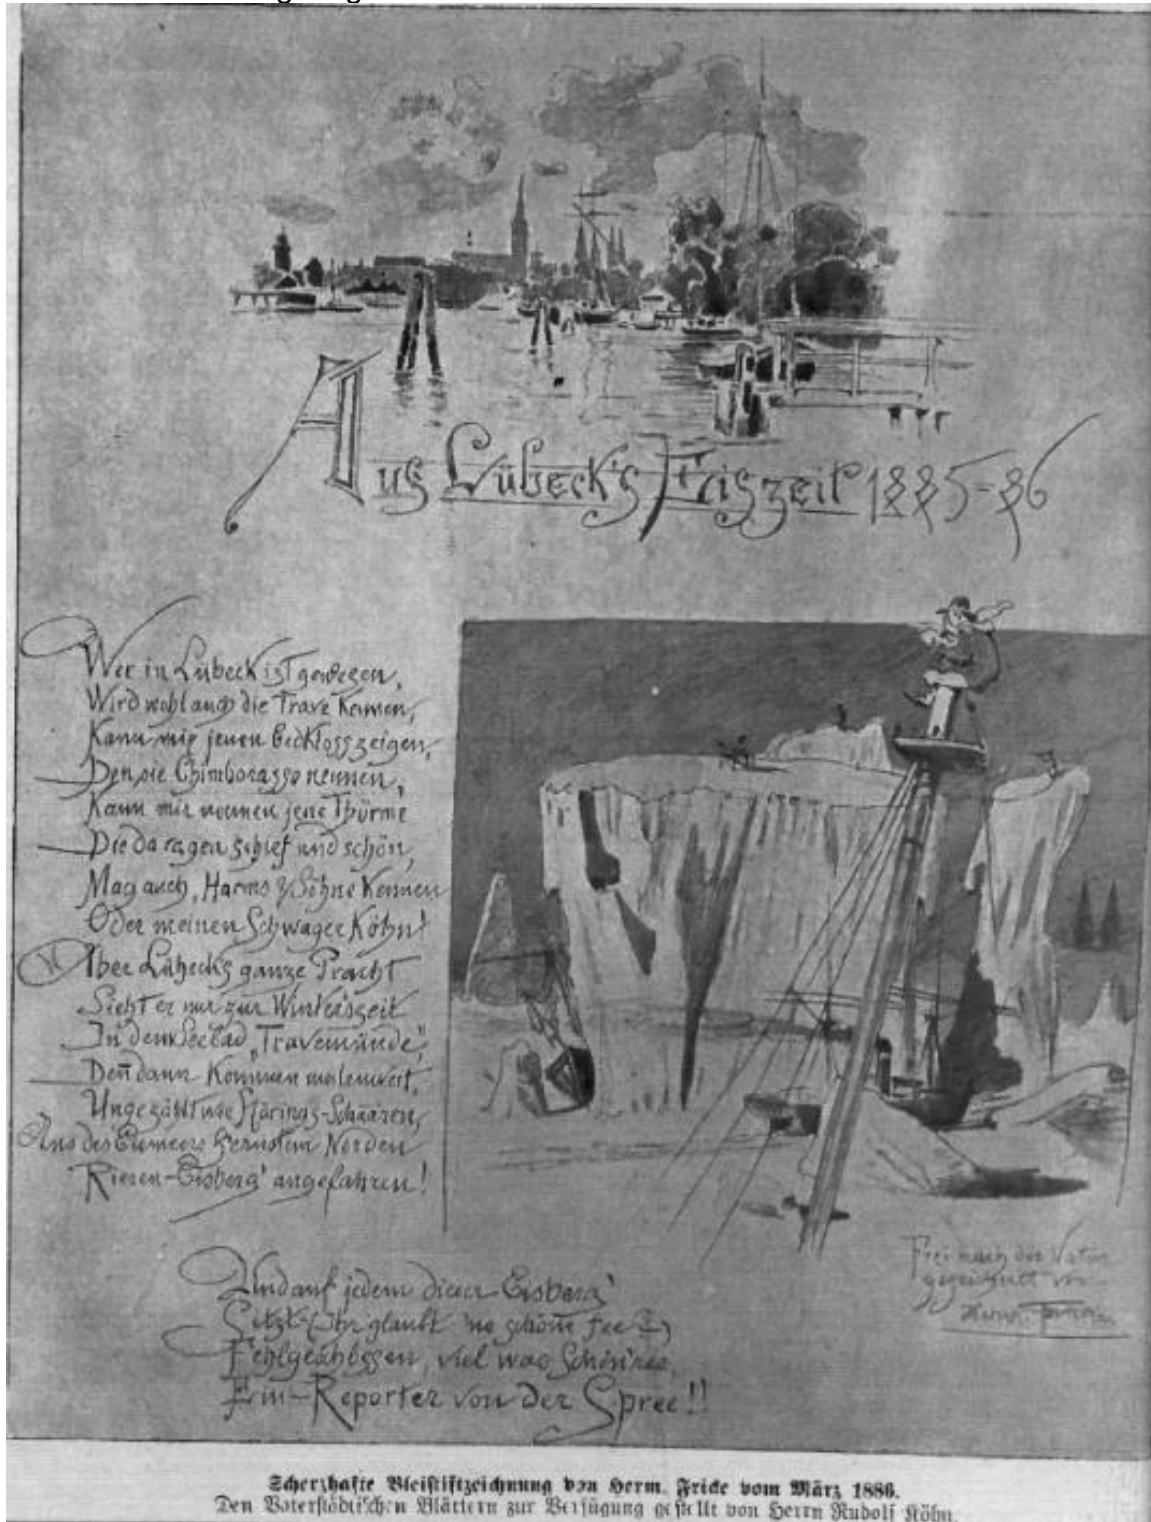 Aus Lübeck's Eiszeit 1885-86
Wer in Lübeck ist gewesen,
Wird wohl auch die Trave kennen,
Kann mir jenen zeigen,
Den sie Chimborasso nennen,
Kann mir nennen jene Thürme
Die da ragen schief und schön,
Mag auch Harms & Söhne kennen
Oder meinen Schwager Köhn!
Aber Lübecks ganze Pracht
Sieht er nur zur Winterszeit
In dem Seebad „Travemünde",
Den̄ dann kommen meilenweit,
Ungezählt wie Härings-Schaaren,
Aus des Eismeers fernstem Norden
Riesen-Eisberg' angefahren!
Und auf jedem dieser Eisberg'
Sitzt (Ihr glaubt 'ne schöne Fee?)
Fehlgeschossen, viel was Schön'res,
Ein Reporter von der Spree!!
Frei nach der Natur
gezeichnet von
Herm. Fricke
Scherzhafte Bleistiftzeichnung von Herm. Fricke vom März 1886.
Den Vaterstädtischen Blättern zur Verfügung gestellt von Herrn Rudolf Köhn.